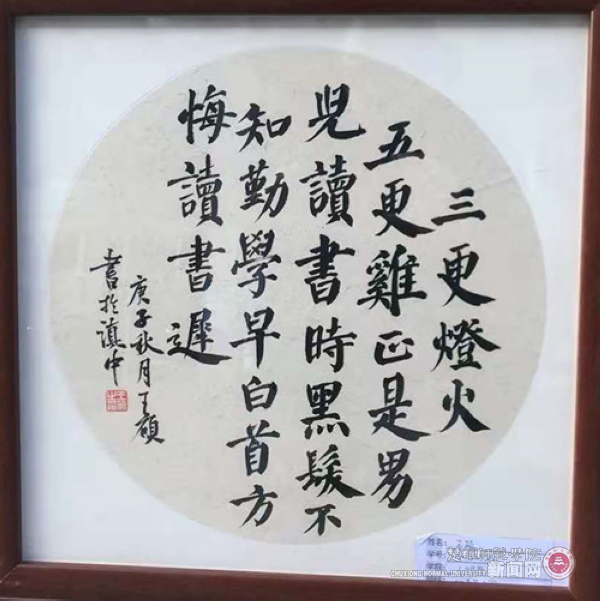 三更燈火
五更雞正是男
児讀書時黑髮不
知勤學早白首方
悔讀書遲
庚子秋月王碩
書於滇中
姓名:
学号:
学院:
楚雄师范学院
新闻网
CHUXIONG NORMAL UNIVERSITY